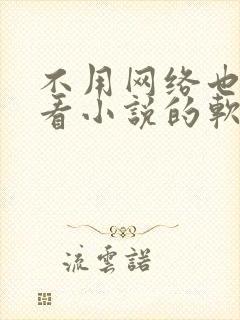 不用网络也
看小说的软
流雲諾